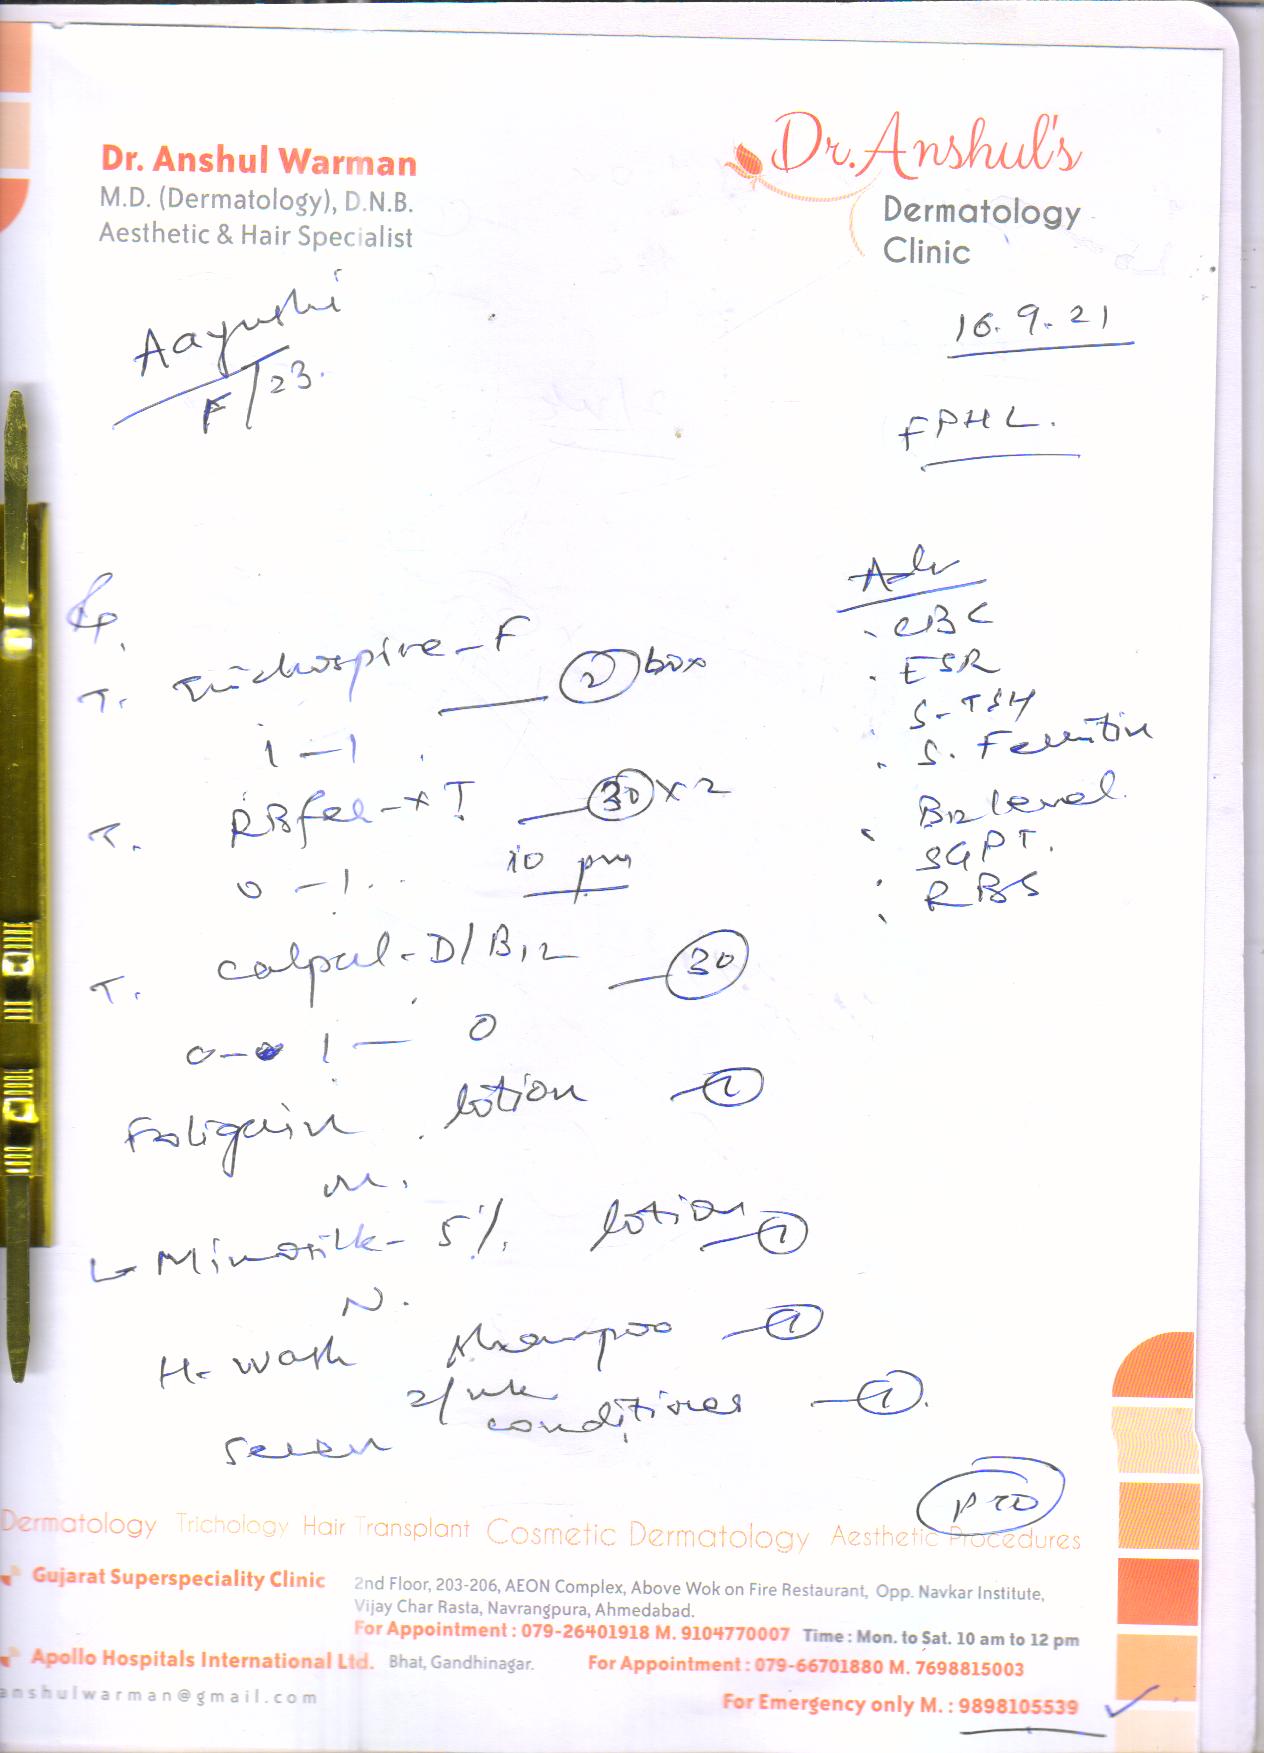 Dr. Anshul Warman
M.D. (Dermatology), D.N.B.
Aesthetic & Hair Specialist
Dr. Anshul's
Dermatology
Clinic
Aayushi
F/23.
16.9.21
FPHL.
Adv
CBC
ESR
S-TSH
S. Ferritin
B12 level.
SGPT.
RBS
Rp.
T. Trichospire-F 2 box
1-1
T. RBfer-XT 30 x 2
0-1. 10 pm
T. D/B12 30
0- 1 - 0
Foligain lotion 1
M.
Minosilk-5% lotion 1
N.
H-wash shampoo 1
2/wk
conditioner 1
Dermatology Trichology Hair Transplant Cosmetic Dermatology Aesthetic Procedures
Gujarat Superspeciality Clinic 2nd Floor, 203-206, AEON Complex, Above Wok on Fire Restaurant, Opp. Navkar Institute,
Vijay Char Rasta, Navrangpura, Ahmedabad.
For Appointment : 079-26401918 M. 9104770007 Time : Mon. to Sat. 10 am to 12 pm
Apollo Hospitals International Ltd. Bhat, Gandhinagar. For Appointment : 079-66701880 M. 7698815003
anshulwarman@gmail.com
For Emergency only M. : 9898105539